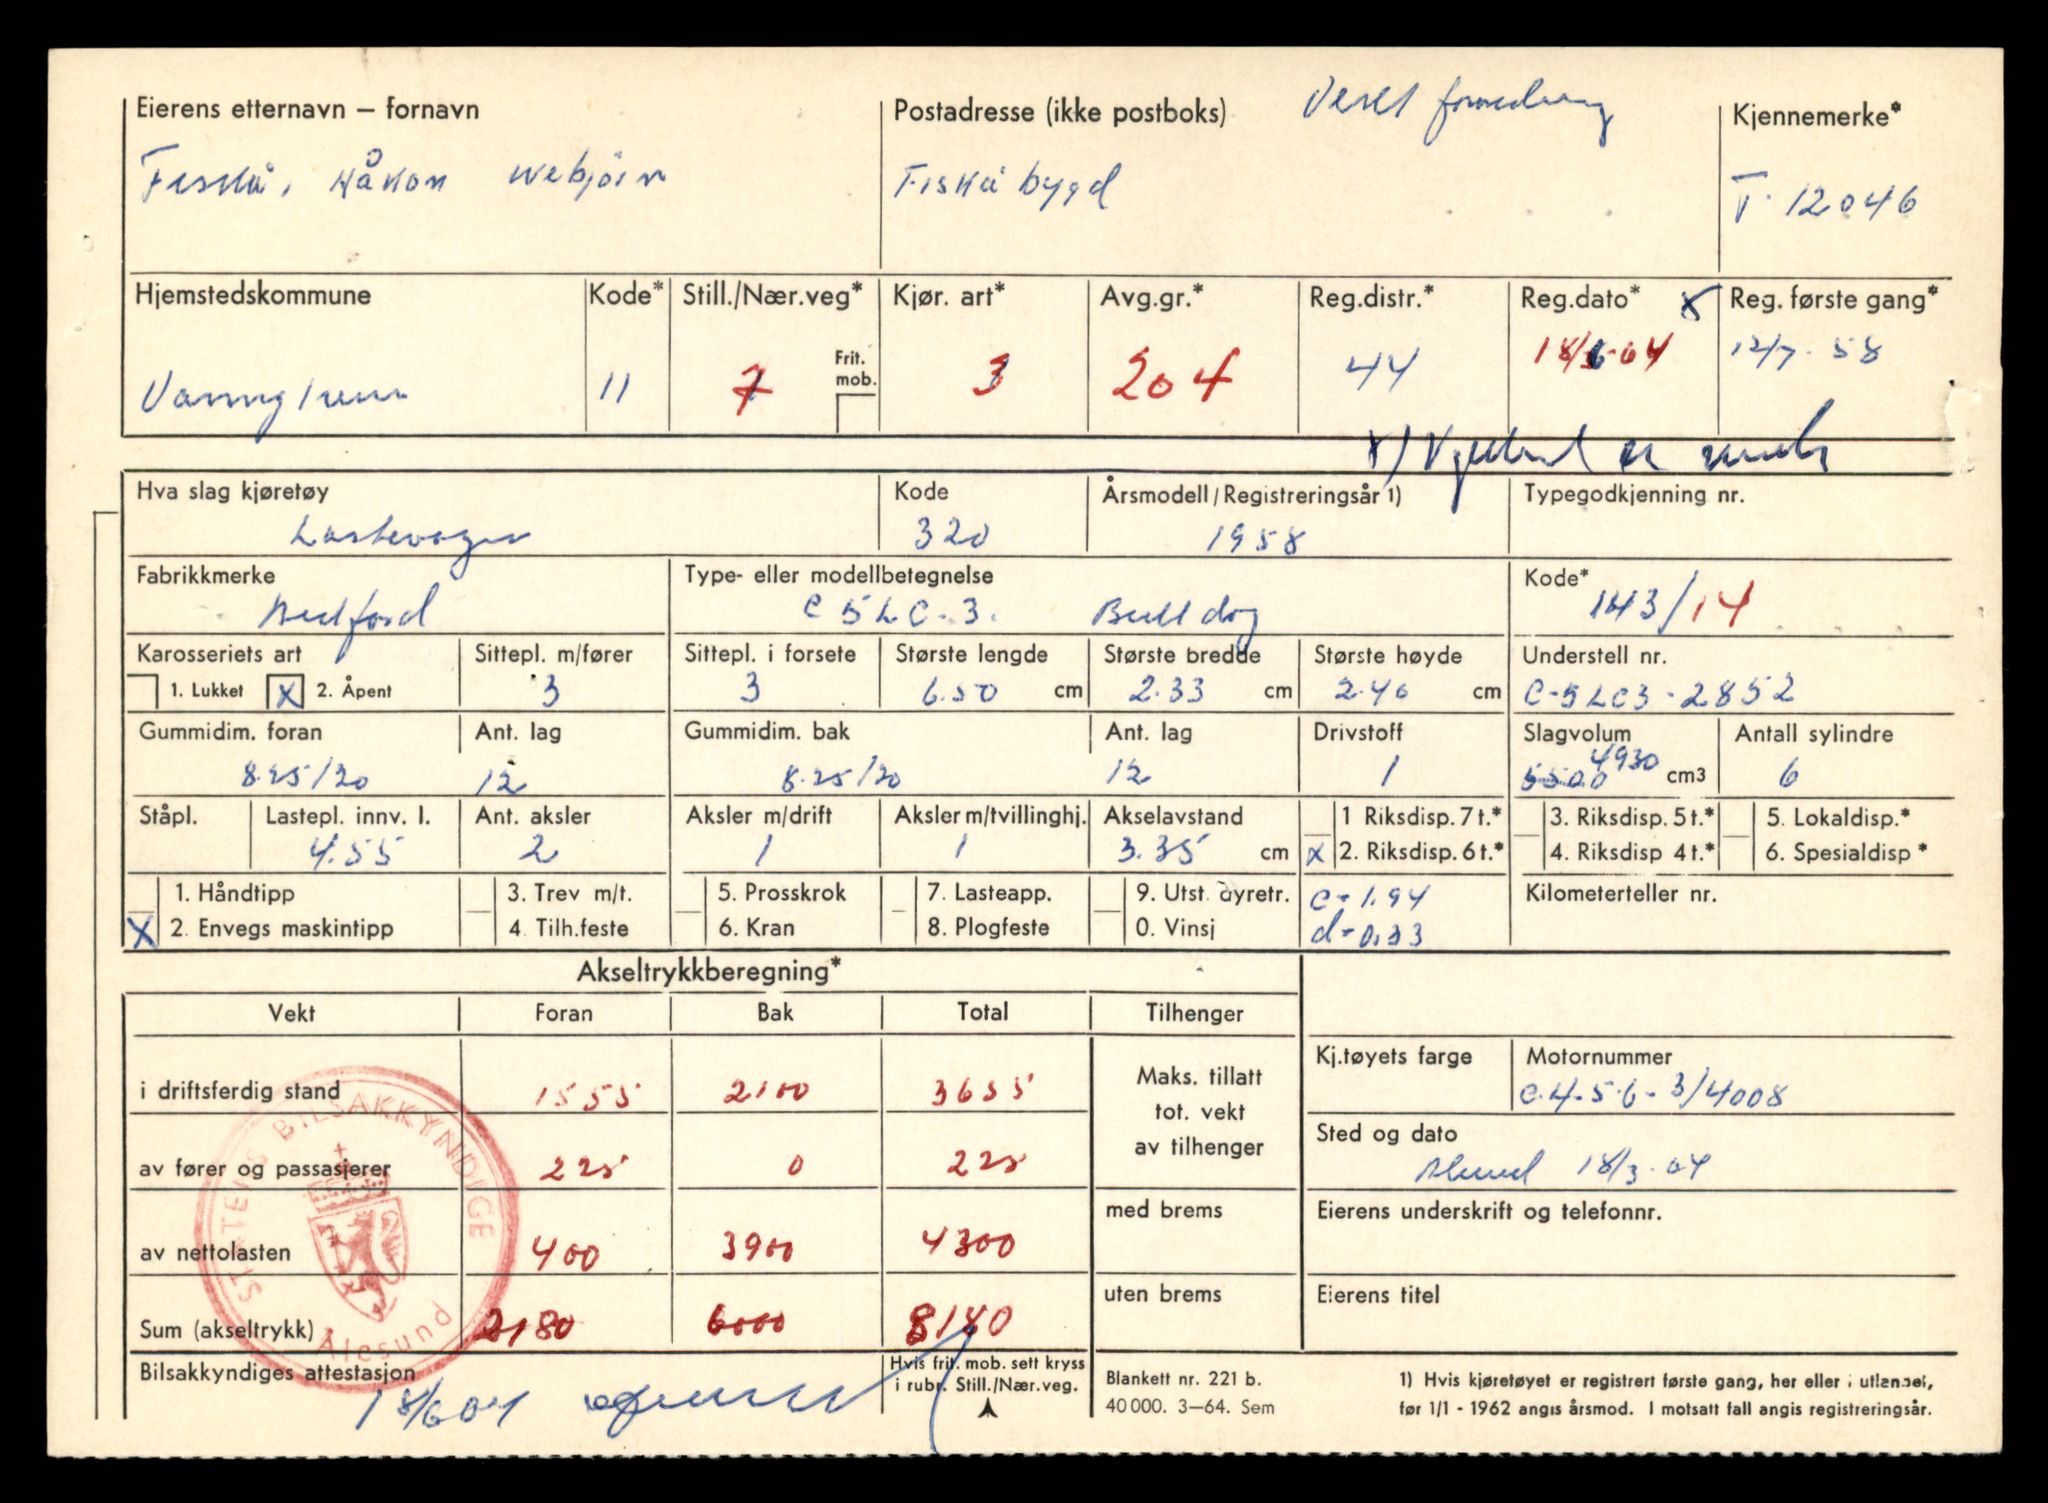 Eierens etternavn – fornavn
Postadresse (ikke postboks)
Kjennemerke*
Fiskå, Håkon
Fiskåbygd
T-12046
Hjemstedskommune
Kode*
Still./Nær.veg*
Kjør. art*
Avg.gr.*
Reg.distr.*
Reg.dato* x
Reg. første gang*
11
7
Frit. mob.
3
204
44
12/7-58
x)
Hva slag kjøretøy
Kode
Årsmodell/Registreringsår 1)
Typegodkjenning nr.
Lastevogn
320
1958
Fabrikkmerke
Type- eller modellbetegnelse
Kode*
Bedford
C5LC-3. Bulldog
143/14
Karosseriets art
Sittepl. m/fører
Sittepl. i forsete
Største lengde
Største bredde
Største høyde
Understell nr.
1. Lukket
X 2. Åpent
3
3
6.50 cm
2.33 cm
2.40 cm
C-5LC3-2852
Gummidim. foran
Ant. lag
Gummidim. bak
Ant. lag
Drivstoff
Slagvolum
Antall sylindre
8.25/20
12
8.25/20
12
1
5500 4930 cm3
6
Ståpl.
Lastepl. innv. l.
Ant. aksler
Aksler m/drift
Aksler m/tvillinghj.
Akselavstand
1 Riksdisp. 7 t.*
3. Riksdisp. 5 t.*
5. Lokaldisp.*
4.55
2
1
1
3.35 cm
x 2. Riksdisp. 6 t.*
4. Riksdisp 4 t.*
6. Spesialdisp*
1. Håndtipp
3. Trev m/t.
5. Prosskrok
7. Lasteapp.
9. Utst. dyretr.
c-1.94
Kilometerteller nr.
X 2. Envegs maskintipp
4. Tilh.feste
6. Kran
8. Plogfeste
0. Vinsj
d-0.33
Akseltrykkberegning*
Vekt
Foran
Bak
Total
Tilhenger
Kj.tøyets farge
Motornummer
i driftsferdig stand
1555
2100
3655
Maks. tillatt
tot. vekt
av tilhenger
C.4-5-6-3/4008
Sted og dato
av fører og passasjerer
225
0
225
18/3-64
med brems
Eierens underskrift og telefonnr.
av nettolasten
400
3900
4300
uten brems
Eierens titel
Sum (akseltrykk)
2180
6000
8180
STATENS BILSAKKYNDIGE
Ålesund
Bilsakkyndiges attestasjon
Hvis frit. mob. sett kryss
i rubr. Still./Nær.veg.
Blankett nr. 221 b.
40 000. 3–64. Sem
1) Hvis kjøretøyet er registrert første gang, her eller i utlandet,
før 1/1 - 1962 angis årsmod. I motsatt fall angis registreringsår.